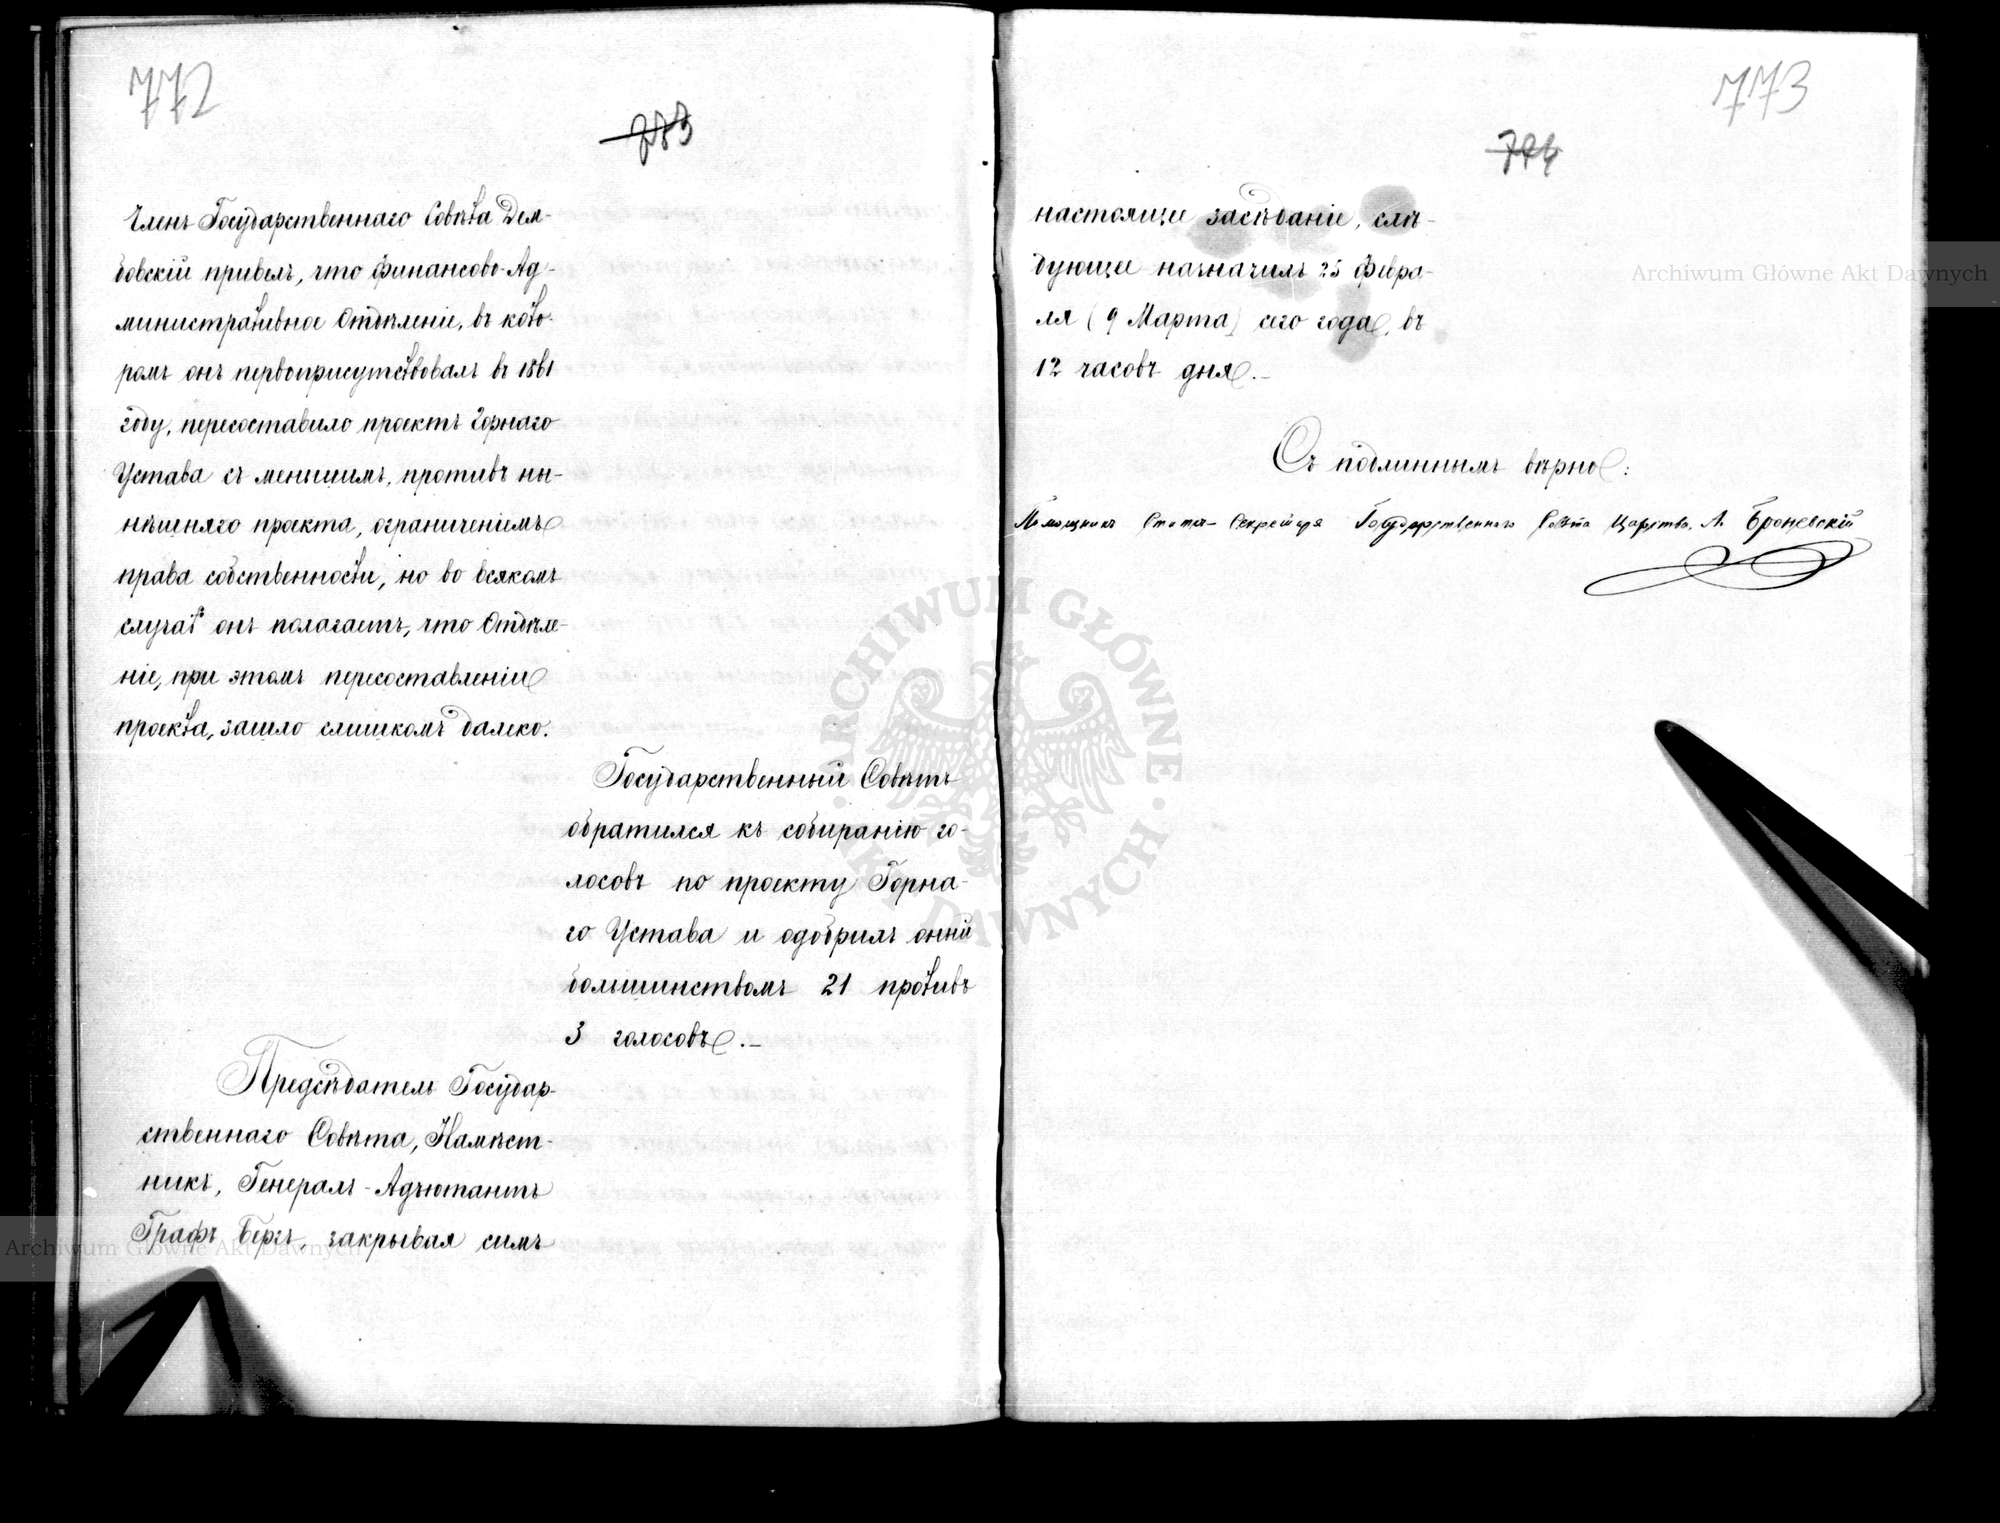 772
Членъ Государственнаго Совѣта Дем-
бовскій привелъ, что Финансово-Ад-
министративное Отдѣленіе, въ кото-
ромъ онъ первоприсутствовалъ въ 1861
году, пересоставило проектъ Горнаго
Устава съ меньшимъ, противъ ны-
нѣшняго проекта, ограниченіемъ
права собственности, но во всякомъ
случаѣ онъ полагаетъ, что Отдѣле-
ніе, при этомъ пересоставленіи
проекта, зашло слишкомъ далеко.
Государственный Совѣтъ
обратился къ собиранію го-
лосовъ по проекту Горна-
го Устава и одобрилъ оный
большинствомъ 21 противъ
3 голосовъ.—
Предсѣдатель Государ-
ственнаго Совѣта, Намѣст-
никъ, Генералъ-Адъютантъ
Графъ Бергъ, закрывая симъ
773
настоящее засѣданіе, слѣ-
дующее назначилъ 25 Февра-
ля (9 Марта) сего года, въ
12 часовъ дня.—
Съ подлиннымъ вѣрно:
Помощникъ Статсъ-Секретаря Государственнаго Совѣта Царства, А. Броневскій
Archiwum Główne Akt Dawnych
Archiwum Główne Akt Dawnych
ARCHIWUM GŁÓWNE AKT DAWNYCH